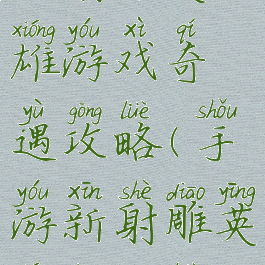 xióng yóu xì qí
雄游戏奇
yù gōng lüè shǒu
遇攻略(手
yóu xīn shè diāo yīng
游新射雕英